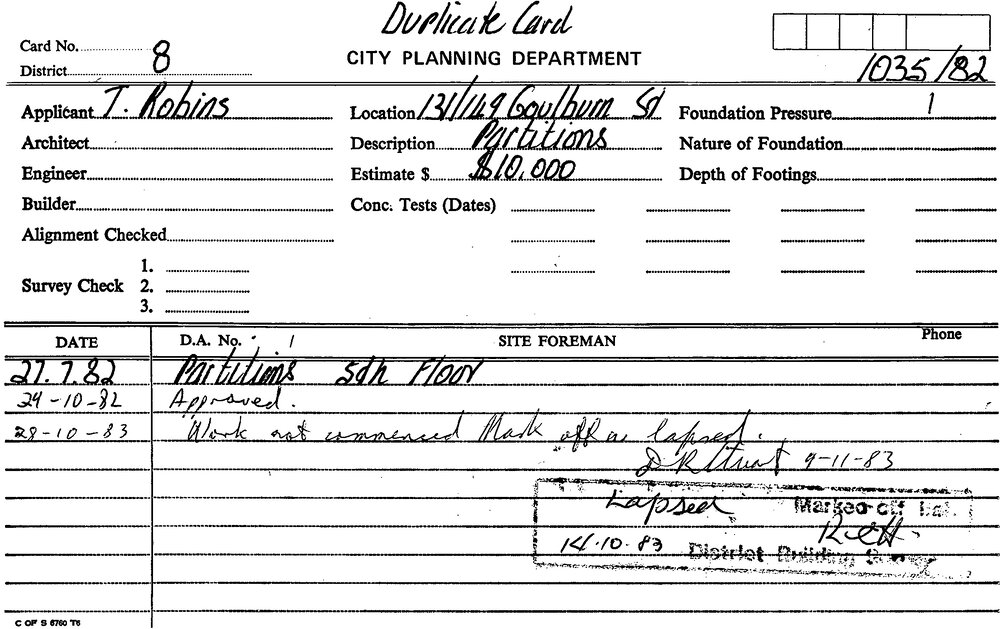 Duplicate Card
Card No.
CITY PLANNING DEPARTMENT
District 8
1035/82
Applicant T. Robins
Location 131/149 Goulburn St
Foundation Pressure
Architect
Description Partitions
Nature of Foundation
Engineer
Estimate $ $10,000
Depth of Footings
Builder
Conc. Tests (Dates)
Alignment Checked
Survey Check
1.
2.
3.
DATE D.A. No. SITE FOREMAN Phone
27.7.82 Partitions 5th Floor
29-10-82 Approved.
28-10-83 Work not commenced Mark off as lapsed.
9-11-83
Lapsed Marked off
14.10.83 District Building
C OF S 6760 T6